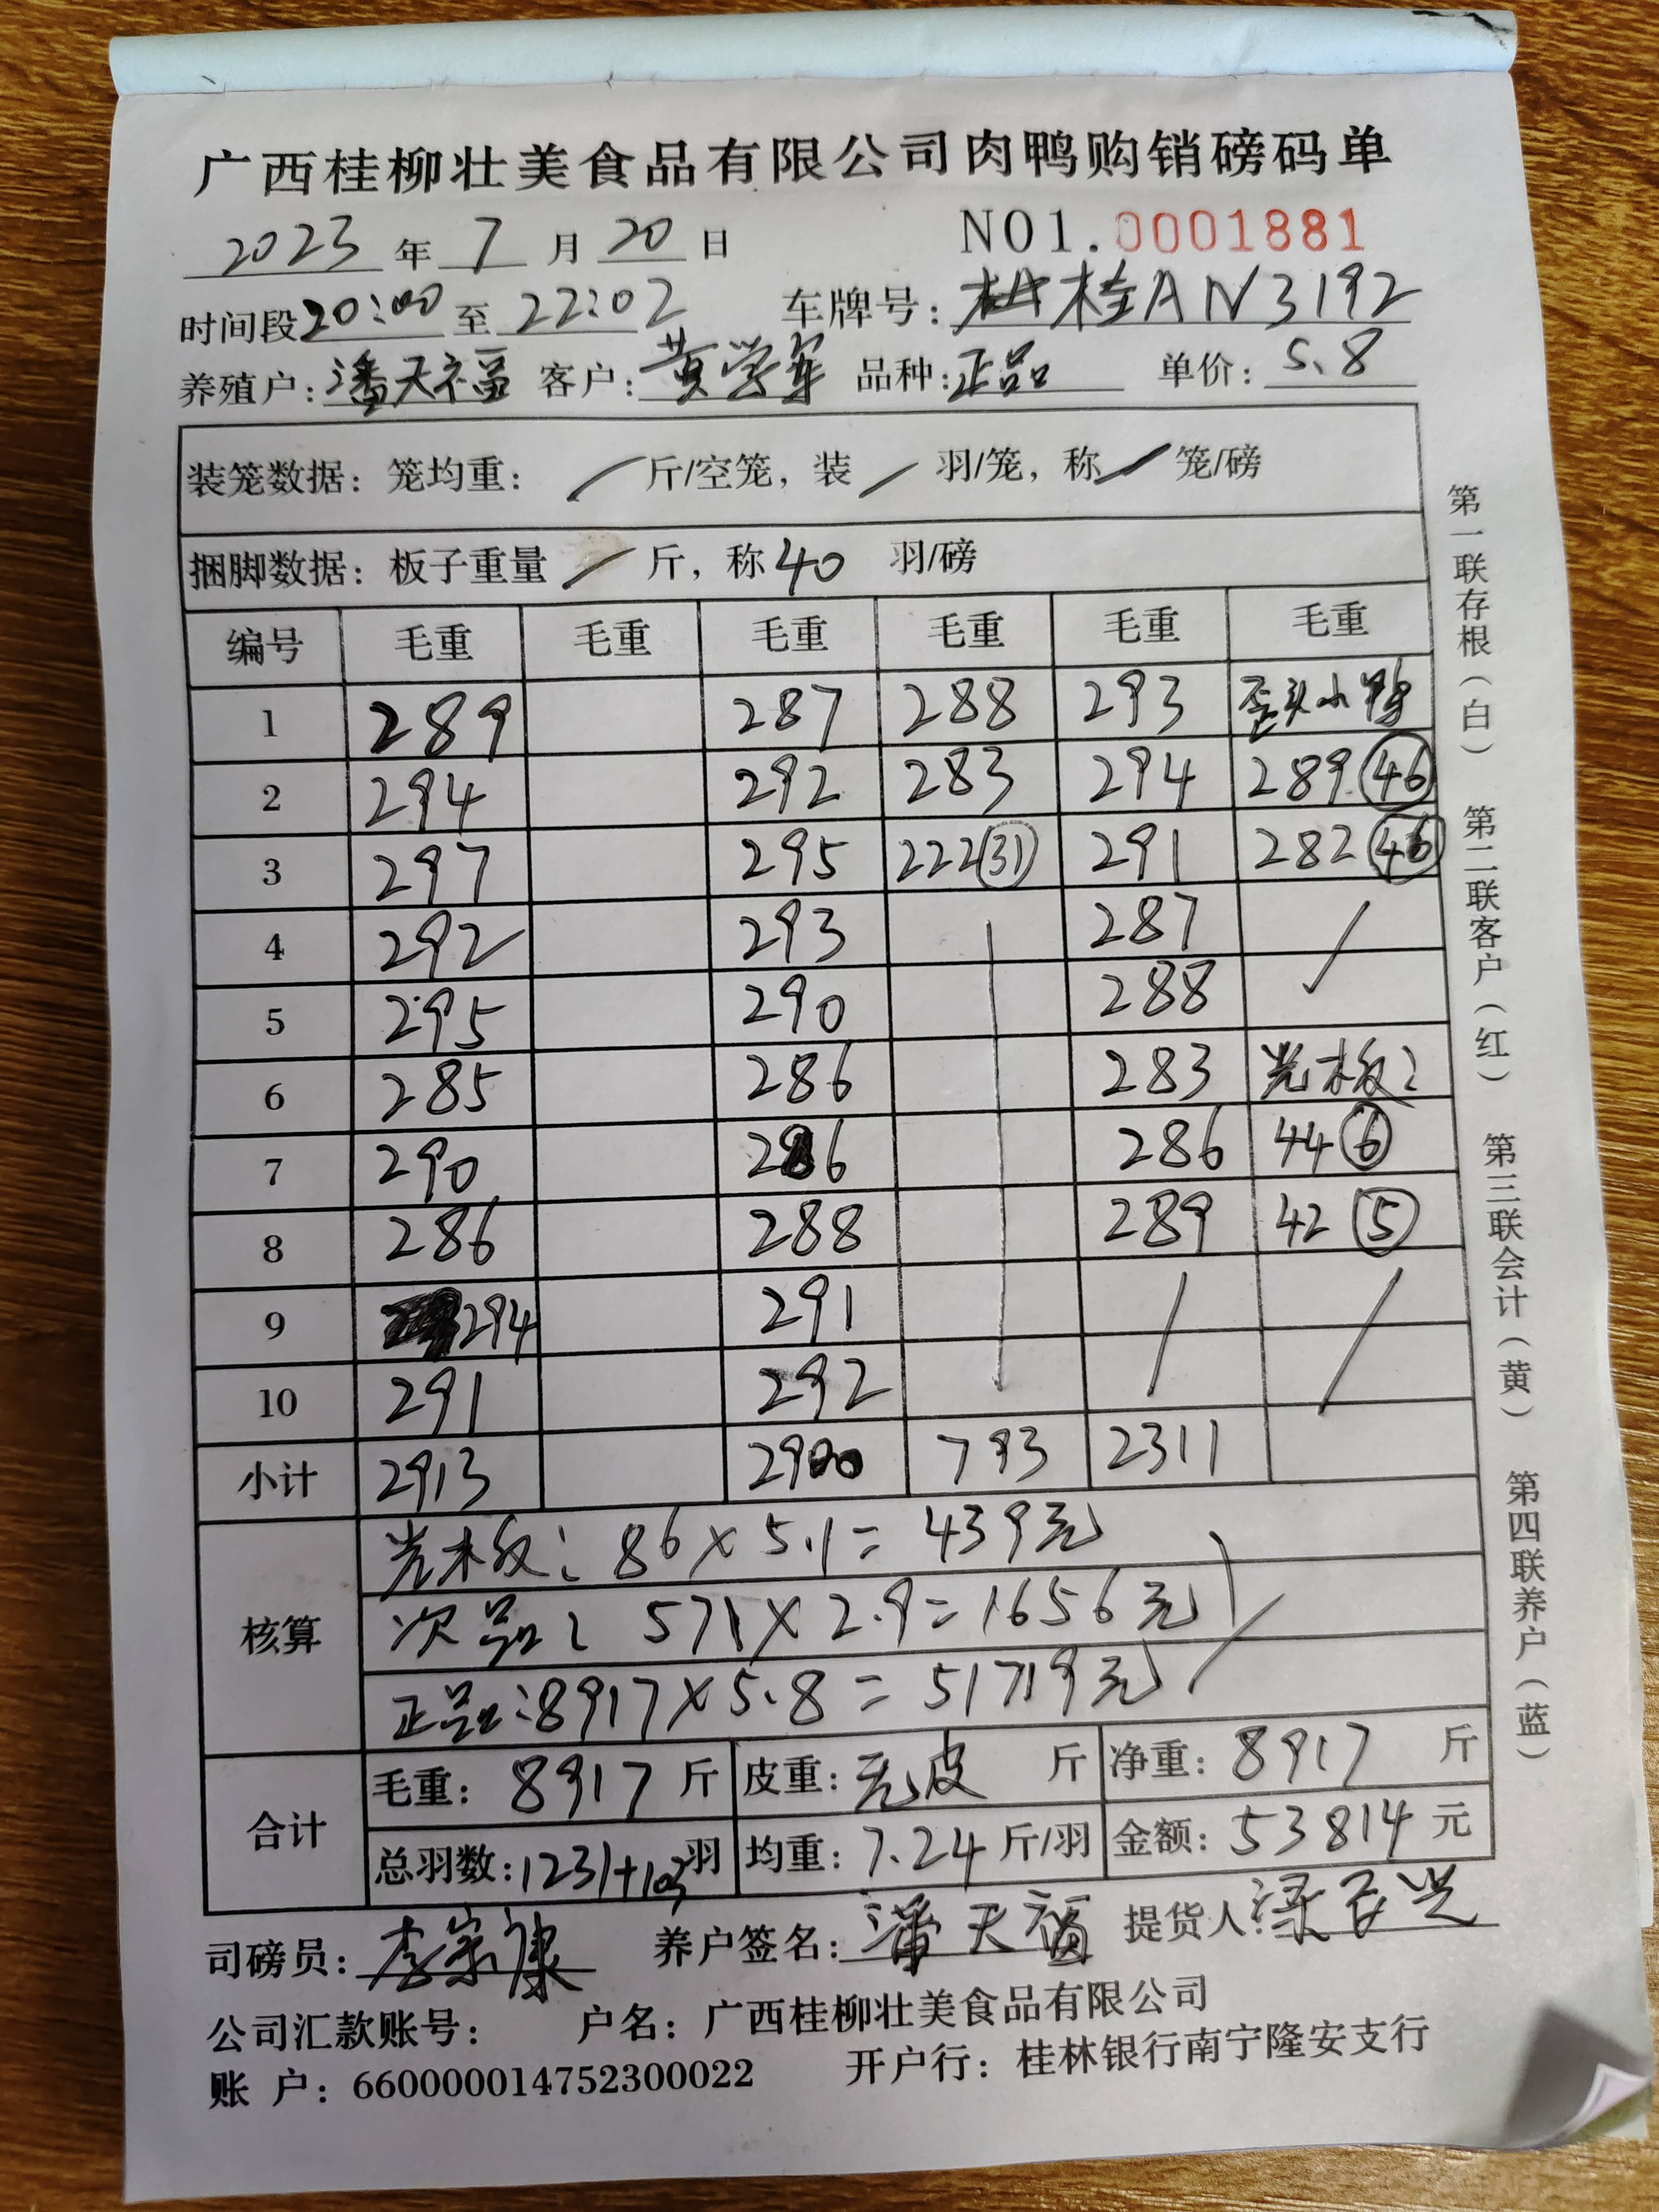 广西桂柳壮美食品有限公司肉鸭购销磅码单
2023 年 7 月 20 日 NO1.0001881
时间段20:00 至 22:02 车牌号: 桂AN3192
养殖户: 潘天福 客户: 黄学军 品种: 正品 单价: 5.8
装笼数据: 笼均重: / 斤/空笼, 装 / 羽/笼, 称 / 笼/磅
捆脚数据: 板子重量 / 斤, 称 40 羽/磅
编号 毛重 毛重 毛重 毛重 毛重 毛重
1 289 287 288 293 歪头小鸭
2 294 292 283 294 289 46
3 297 295 222 31 291 282 46
4 292 293 287 /
5 295 290 288
6 285 286 283 光板:
7 290 286 286 44 6
8 286 288 289 42 5
9 294 291 / /
10 291 292
小计 2913 2900 793 2311
核算 光板: 86×5.1=439元
次品: 571×2.9=1656元
正品:8917×5.8=51719元
合计 毛重: 8917 斤 皮重: 无皮 斤 净重: 8917 斤
总羽数:1231+103羽 均重: 7.24 斤/羽 金额: 53814 元
司磅员: 李宗康 养户签名: 潘天福 提货人:
公司汇款账号: 户名: 广西桂柳壮美食品有限公司
账 户: 660000014752300022 开户行: 桂林银行南宁隆安支行
第一联存根(白) 第二联客户(红) 第三联会计(黄) 第四联养户(蓝)